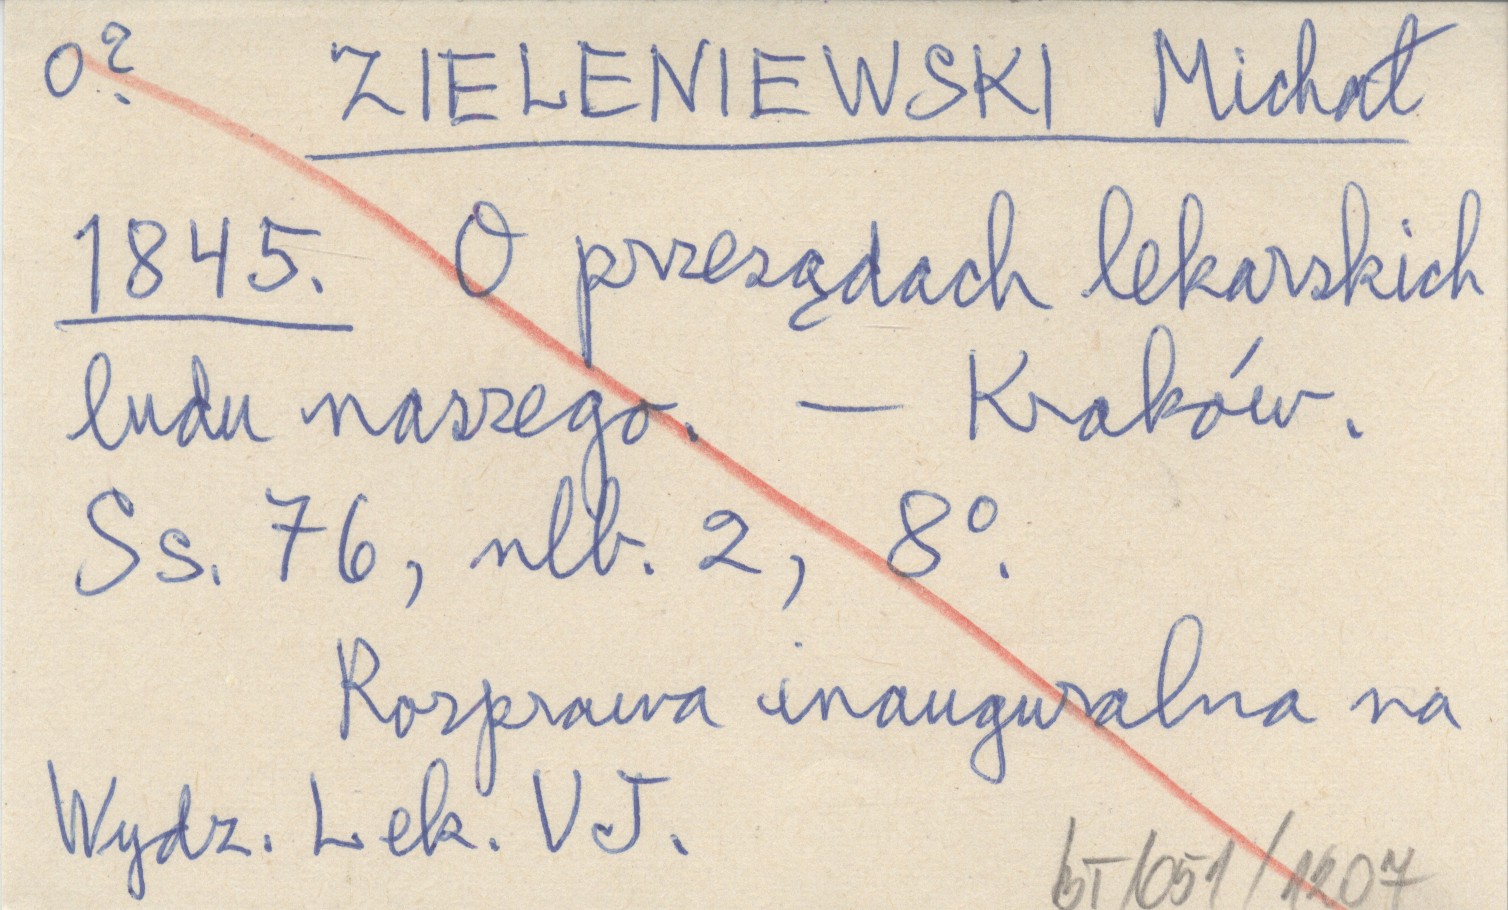 o? ZIELENIEWSKI Michał
1845. O przesądach lekarskich
ludu naszego. — Kraków.
Ss. 76, nlb. 2, 8°.
Rozprawa inauguralna na
Wydz. Lek. UJ.
BT/051/1207